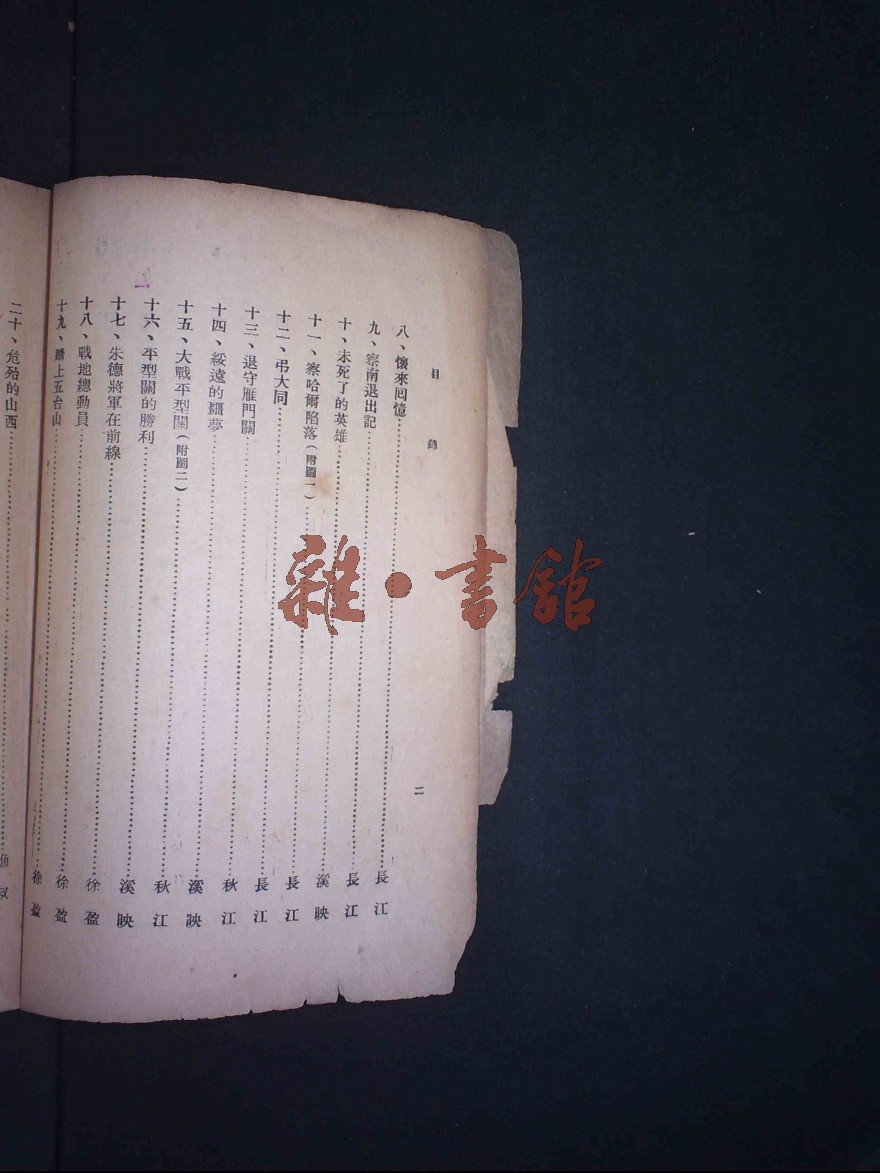 目錄
二
八、懷來回憶……長江
九、察南退出記……長江
十、未死了的英雄……溪映
十一、察哈爾陷落(附圖一)……長江
十二、弔大同……長江
十三、退守雁門關……秋江
十四、綏遠的噩夢……溪映
十五、大戰平型關(附圖二)……秋江
十六、平型關的勝利……溪映
十七、朱德將軍在前線……徐盈
十八、戰地總動員……徐盈
十九、踏上五台山……徐盈
二十、危殆的山西……
雜·書館